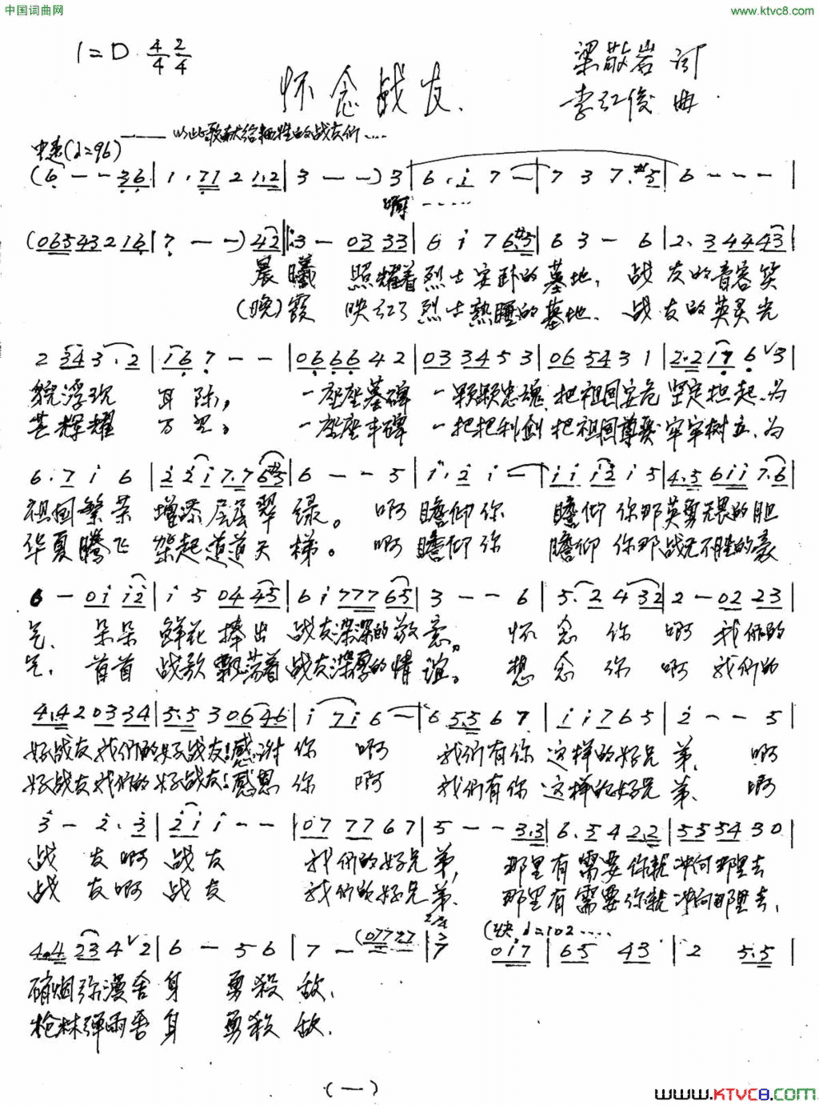 中国词曲网
www.ktvc8.com
1=D 4/4 2/4
怀念战友.
梁敬岩 词
李红俊 曲
——以此歌献给牺牲的战友们……
中速(♩=96)
(6 - - 3 6 | 1. 7 1 2 1.2 | 3 - - ) 3 | 6. i 7 - | 7 3 7. #5 | 6 - - - |
啊……
(0 6 5 4 3 2 1 6 | 7 - - ) 4 2 ‖: 3 - 0 3 3 3 | 6 i 7 6 #5 | 6 3 - 6 | 2. 3 4 4 4 3 |
晨曦 照耀着烈士安卧的墓地, 战友的音容笑
(晚)霞 映红了烈士熟睡的墓地、战友的英灵光
2 3 4 3 . 2 | i 6 7 - - | 0 6 6 6 4 2 | 0 3 3 4 5 3 | 0 6 5 4 3 1 | 2. 2 1 7 6 ˅ 3 |
貌浮现 耳际, 一座座墓碑 一颗颗忠魂, 把祖国安危 坚定担起、为
芒辉耀 万里; 一座座丰碑 一把把利剑 把祖国尊严 牢牢树立、为
6. 7 i 6 | 2 2 i 7. 7 6 #5 | 6 - - 5 | i. 2 i - | i i i 2 i 5 | 4. 5 6 i i 7. 6 |
祖国繁荣 增添层层翠绿。 啊 瞻仰你 瞻仰 你那英勇无畏的胆
华夏腾飞 架起道道天梯。 啊 瞻仰你 瞻仰 你那战无不胜的豪
6 - 0 i i 2 | i 5 0 4 4 5 | 6 i 7 7 7 6 5 | 3 - - 6 | 5. 2 4 3 2 | 2 - 0 2 2 3 |
气、朵朵 鲜花 捧出 战友深深的敬意。 怀念 你 啊 我们的
气, 首首 战歌 飘荡着战友深厚的情谊。 想念 你 啊 我们的
4. 4 2 0 3 3 4 | 5. 5 3 0 6 4 6 | i 7 i 6 - | 6 5. 5 6 7 | i i 7 6 5 | 2 - - 5 |
好战友我们的好战友!感谢 你 啊 我们有你 这样的好兄弟、 啊
好战友我们的好战友!感恩 你 啊 我们有你 这样的好兄弟、 啊
3 - 2. 3 | 2 i i - - | 0 7 7 7 6 7 | 5 - - 3. 3 | 6. 5 4 2. 2 | 5 5 5 4 3 0 |
战 友啊 战友 我们的好兄弟, 那里有需要你就冲向那里去
战 友啊 战友 我们的好兄弟. 那里有需要你就冲向那里去,
4. 4 2 3 4 ˅ 2 | 6 - 5 6 | 7 - (0 7 7 2 7 | 2/4 7 (快 ♩=102…… 0 i 7 | 6 5 4 3 | 2 5. 5 |
硝烟弥漫舍身 勇殺敌、
枪林弹雨吾身 勇殺敌.
(一)
www.KTVC8.com